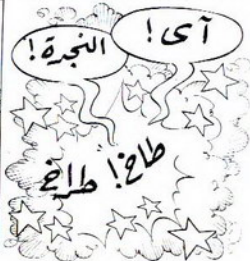 آى!
النجدة!
طاخ! طراخ